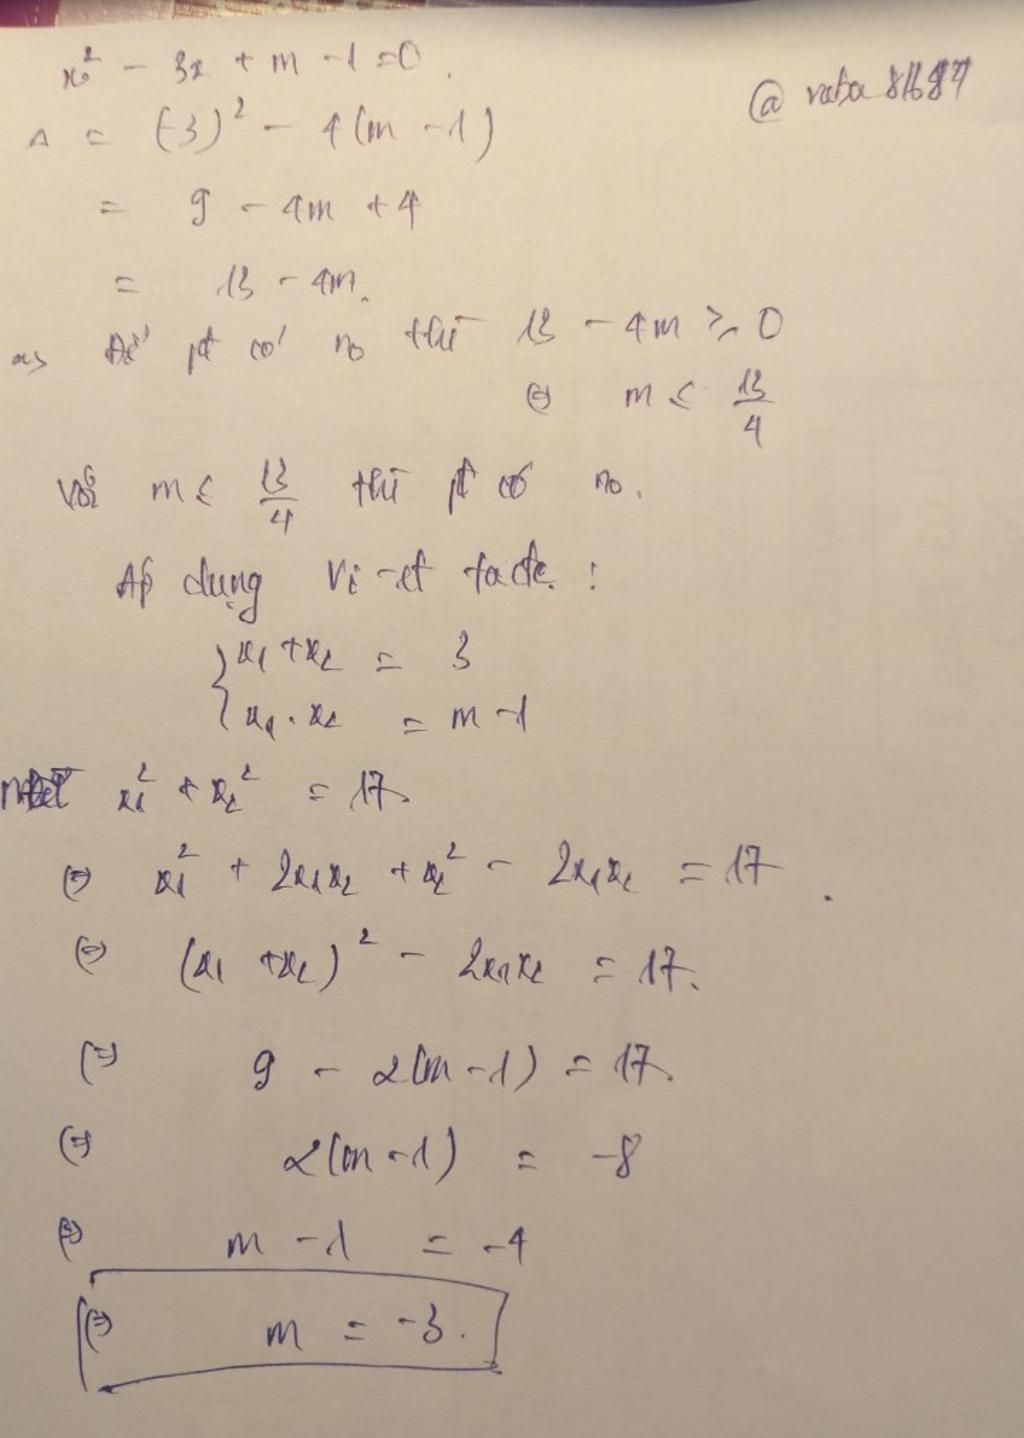 x² - 3x + m - 1 = 0.
Δ = (-3)² - 4(m - 1)
= 9 - 4m + 4
= 13 - 4m.
Để pt có no thì 13 - 4m ≥ 0
⇔ m ≤ 13/4
Với m ≤ 13/4 thì pt có no.
Áp dụng Vi-et ta có:
{ x₁ + x₂ = 3
x₁ . x₂ = m - 1
x₁² + x₂² = 17.
⇔ x₁² + 2x₁x₂ + x₂² - 2x₁x₂ = 17
⇔ (x₁ + x₂)² - 2x₁x₂ = 17.
⇔ 9 - 2(m - 1) = 17.
⇔ 2(m - 1) = -8
⇔ m - 1 = -4
⇔ m = -3.